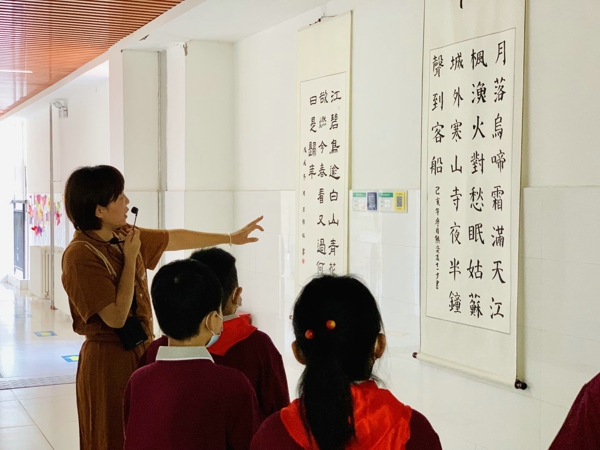 月落烏啼霜滿天江
楓漁火對愁眠姑蘇
城外寒山寺夜半鐘
聲到客船
江碧鳥逾白山青花
欲燃今春看又過何
日是歸年